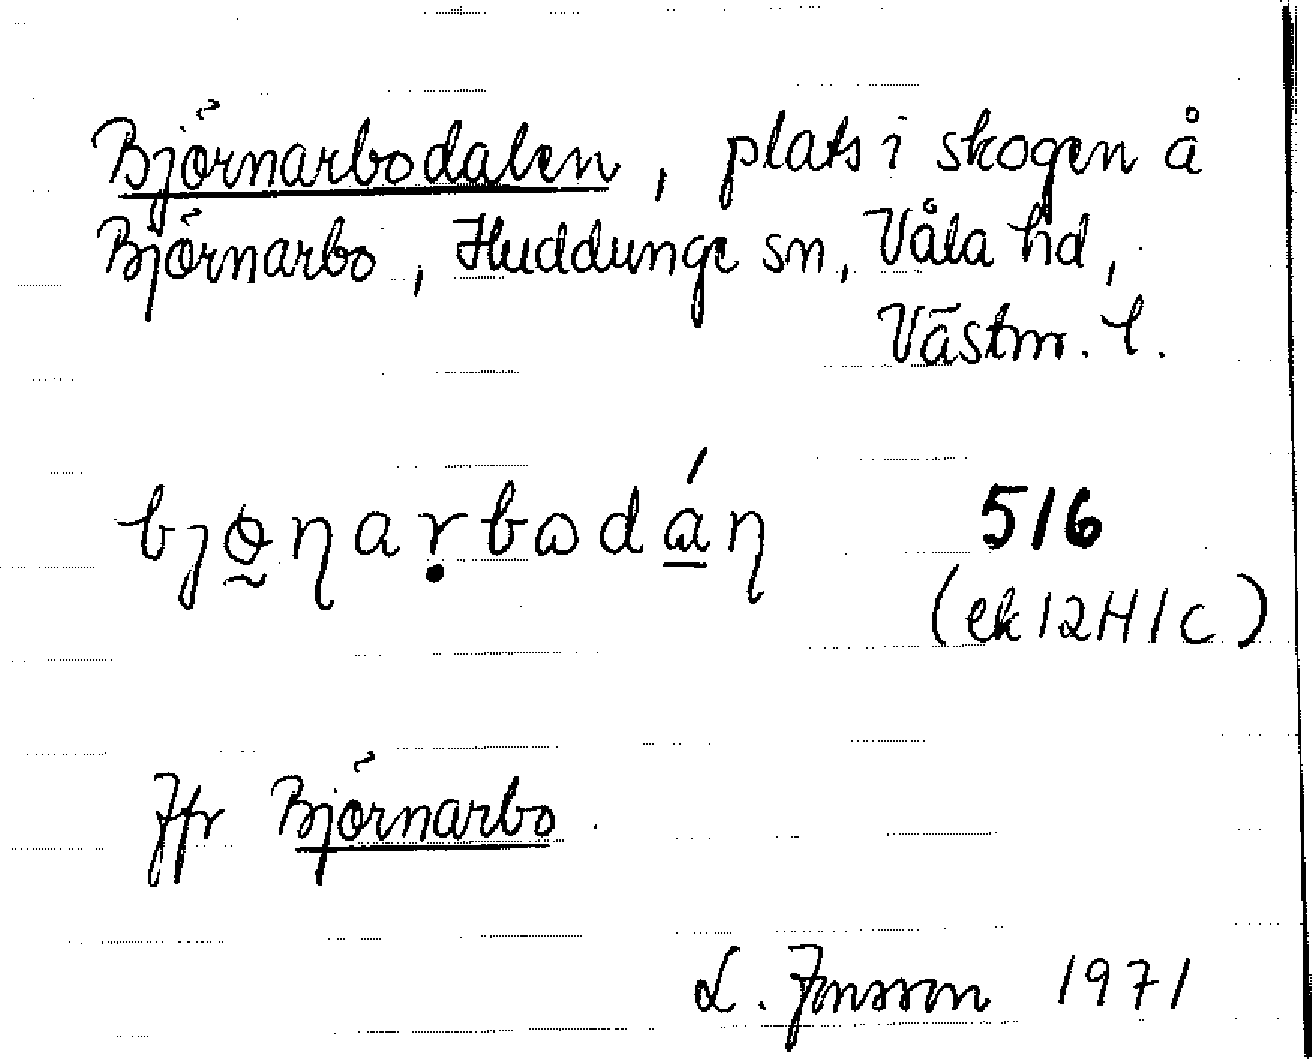 Björnarbodalen, plats i skogen å
Björnarbo, Huddunge sn, Våla hd,
Västm. l.
516
(ek 12H1c)
Jfr Björnarbo
L. Jonsson 1971